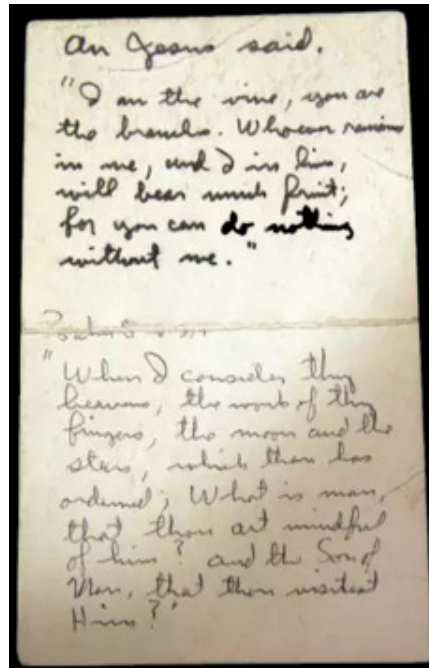 As Jesus said.
"I am the vine, you are
the branches. Whoever remains
in me, and I in him,
will bear much fruit;
for you can do nothing
without me."
Psalm 8
"When I consider thy
heavens, the work of thy
fingers, the moon and the
stars, which thou has
ordained; What is man,
that thou art mindful
of him? and the Son of
Man, that thou visitest
Him?"